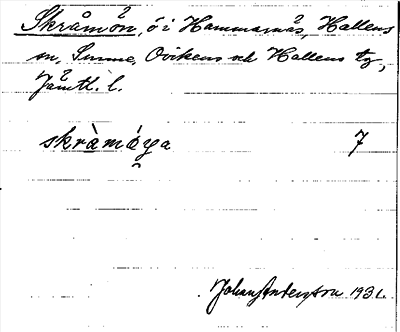 Skråmön, ö i Hammarnäs, Hallens
sn, Sunne, Ovikens och Hallens tg,
Jämtl. l.
skràmǫ́ya 7
Johan Anderson 1931.